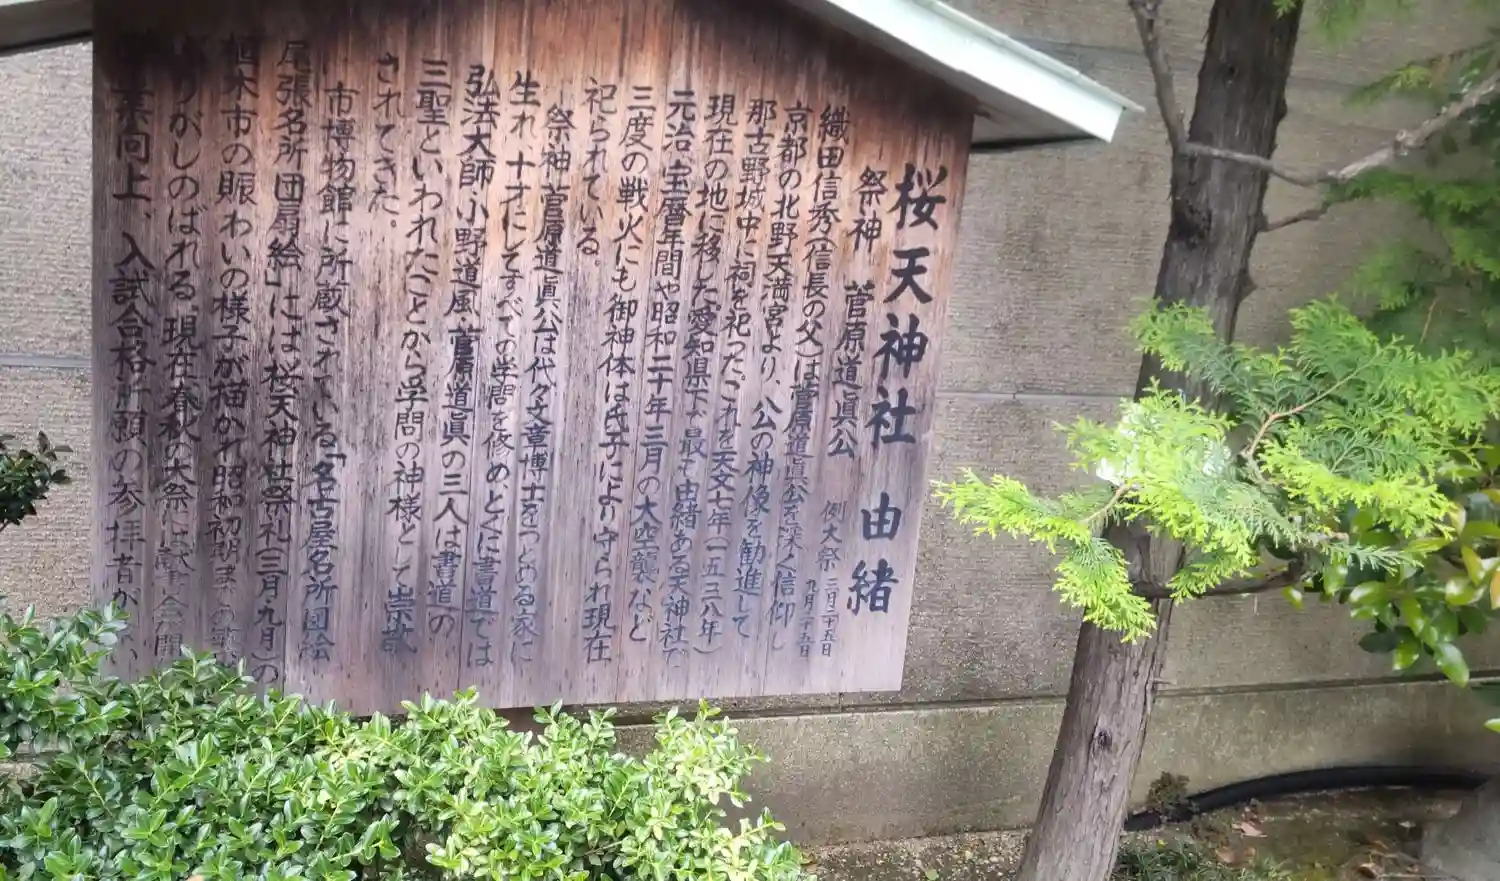 桜天神社 由緒
祭神 菅原道眞公 例大祭 三月二十五日
九月二十五日
織田信秀(信長の父)は菅原道眞公を深く信仰し
京都の北野天満宮より、公の神像を勧進して
那古野城中に祠を祀った。これを天文七年(一五三八年)
現在の地に移した。愛知県下で最も由緒ある天神社で
元治、宝暦年間や昭和二十年三月の大空襲など
三度の戦火にも御神体は氏子により守られ現在
祀られている。
祭神菅原道眞公は代々文章博士をつとめる家に
生れ、十才にしてすべての学問を修め、とくに書道では
弘法大師・小野道風・菅原道眞の三人は書道の
三聖といわれたことから学問の神様として崇敬
されてきた。
市博物館に所蔵されている「名古屋名所団絵
尾張名所団扇絵」には桜天神社祭礼(三月・九月)の
植木市の賑わいの様子が描かれ昭和初期までの
がしのばれる。現在春秋の大祭には献書会の開
業向上、入試合格祈願の参拝者が